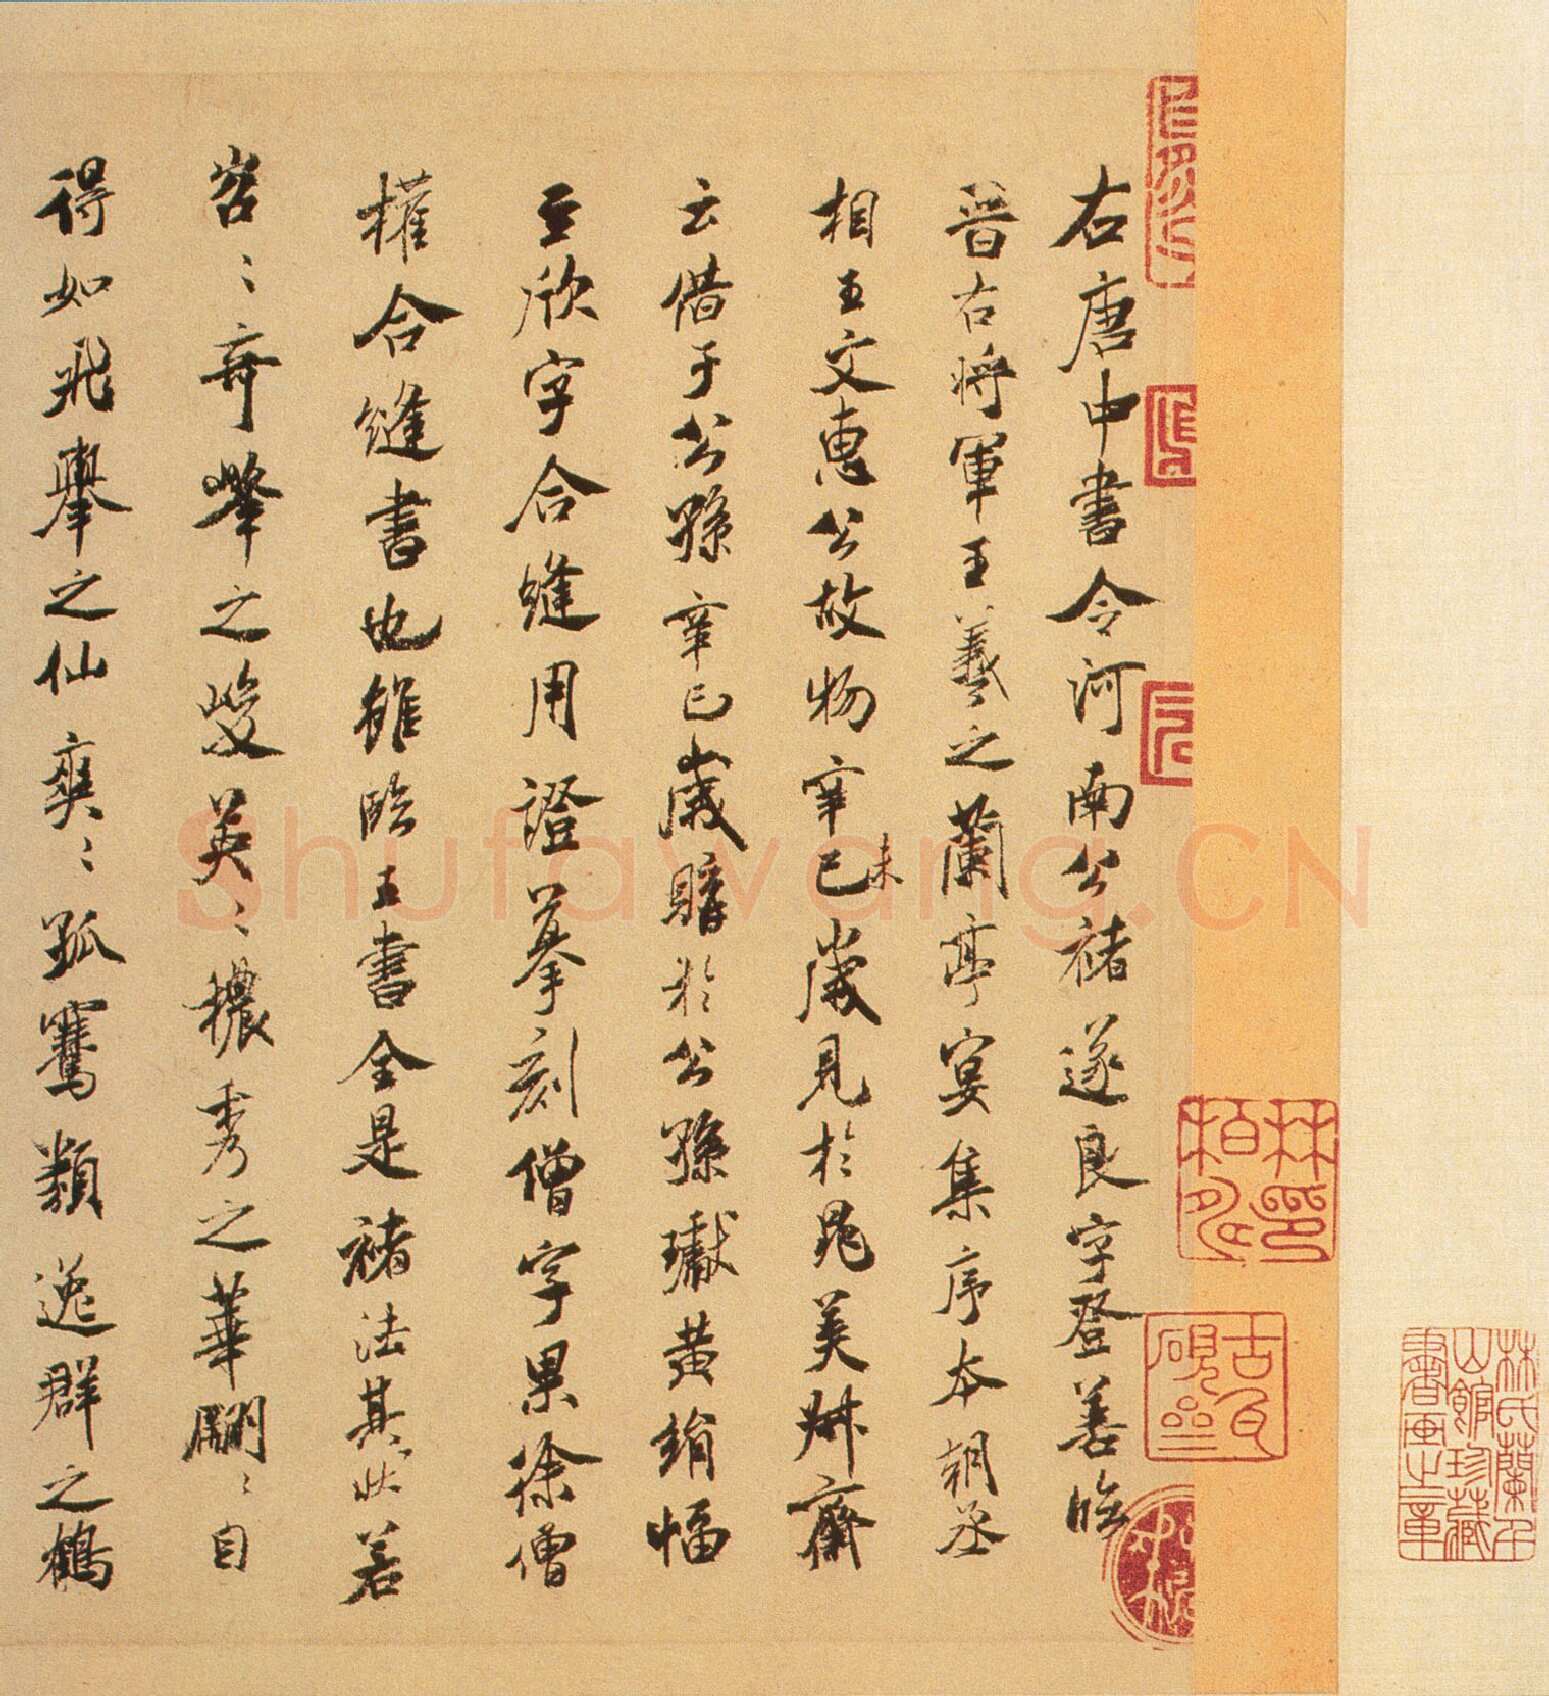 右唐中書令河南公褚遂良字登善臨
晉右將軍王羲之蘭亭宴集序本朝丞
相王文惠公故物辛巳未歲見於晁美叔齋
云借于公孫辛巳歲購於公孫瓛黃絹幅
至欣字合縫用證摹刻僧字果徐僧
權合縫書也雖臨王書全是褚法其狀若
岩〻奇峯之峻英〻穠秀之華翩〻自
得如飛舉之仙爽〻孤騫類逸群之鶴
林氏蘭千山館珍藏書畫之章
Shufawang.CN